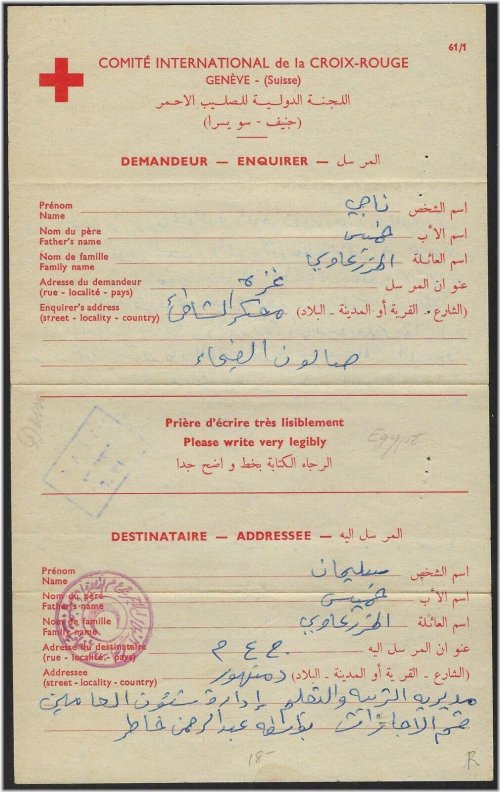 61/1
COMITÉ INTERNATIONAL de la CROIX-ROUGE
GENÈVE - (Suisse)
اللجنـة الدوليـة للصليـب الاحمـر
(جنيف - سويسرا)
DEMANDEUR — ENQUIRER — المرسل
Prénom
Name ناجي اسم الشخص
Nom du père
Father's name خميس اسم الأب
Nom de famille
Family name المزرعاوي اسم العائـلة
Adresse du demandeur غزه عنوان المرسل
(rue - localité - pays)
Enquirer's address معسكر الشاطئ (الشارع - القرية أو المدينة - البلاد)
(street - locality - country)
صالون الضحاء
Prière d'écrire très lisiblement
Please write very legibly
Egypt
الرجاء الكتابة بخط واضح جدا
DESTINATAIRE — ADDRESSEE — المرسل اليه
Prénom
Name سليمان اسم الشخص
Nom du père
Father's name خميس اسم الأب
Nom de famille
Family name المزرعاوي اسم العائلة
Adresse du destinataire ج ع م عنوان المرسل اليه
(rue - localité - pays)
Addressee دمنهور (الشارع - القرية أو المدينة - البلاد)
(street - locality - country)
مديرية التربية والتعليم إدارة شئون العاملين
قسم الاجازات بواسطه عبدالرحمن خاطر
18- R